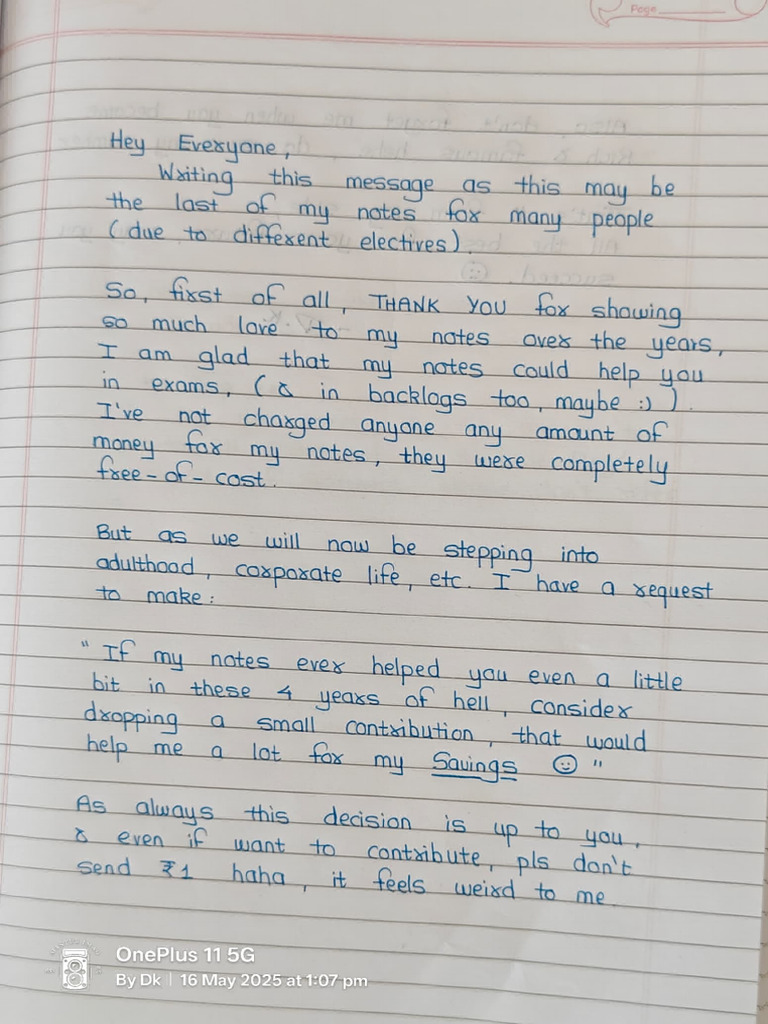 Page
Hey Everyone,
Writing this message as this may be
the last of my notes for many people
(due to different electives).
So, first of all, THANK YOU for showing
so much love to my notes over the years,
I am glad that my notes could help you
in exams, (& in backlogs too, maybe :) ).
I've not charged anyone any amount of
money for my notes, they were completely
free-of-cost.
But as we will now be stepping into
adulthood, corporate life, etc. I have a request
to make:
" If my notes ever helped you even a little
bit in these 4 years of hell, consider
dropping a small contribution, that would
help me a lot for my Savings ☺ "
As always this decision is up to you,
& even if want to contribute, pls don't
send ₹1 haha, it feels weird to me.
OnePlus 11 5G
By Dk | 16 May 2025 at 1:07 pm